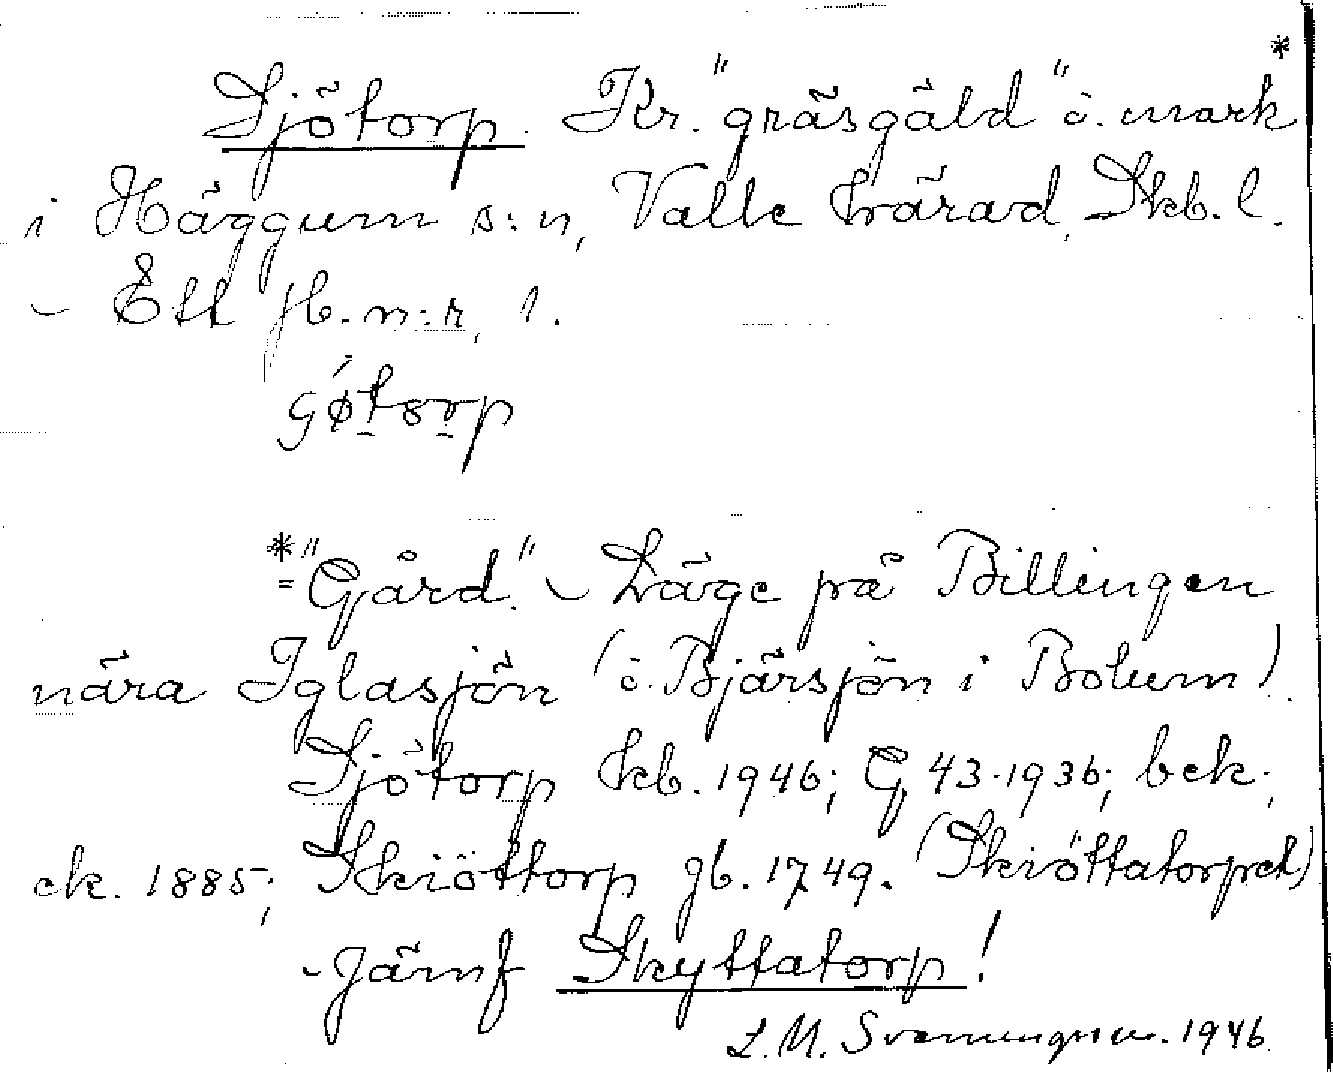 *
Sjötorp. Kr. "gräsgäld" ö. mark
i Häggum s:n, Valle härad, Skb. l.
– Ett jb. n:r, 1.
*"Gård." – Läge på Billingen
nära Iglasjön (ö. Bjärsjön i Bolum).
Sjötorp kb. 1946; G, 43. 1936; bek.;
ek. 1885; Skiöttorp jb. 1749. (Skiöttatorpet)
– Jämf Skyttatorp!
L. M. Svenungsson. 1946.